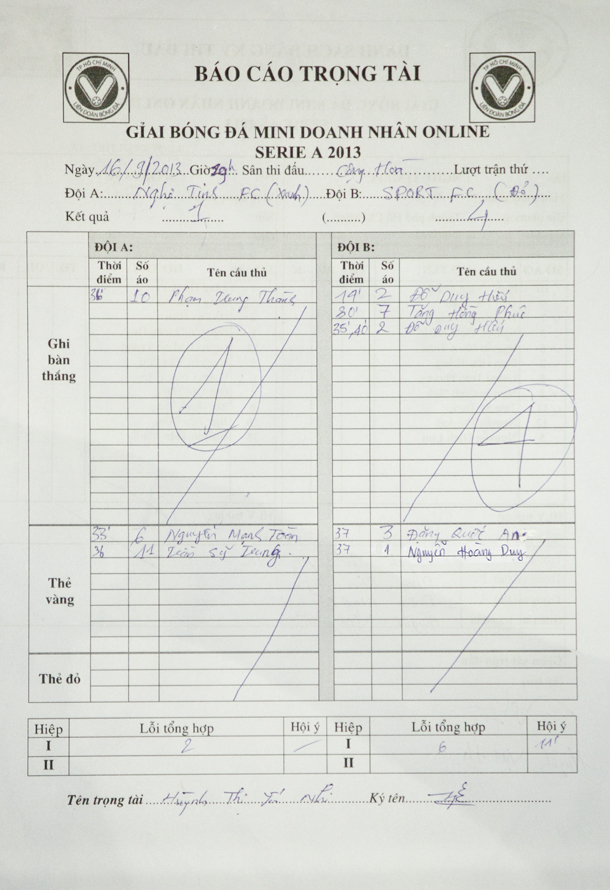 TP HỒ CHÍ MINH
LIÊN ĐOÀN BÓNG ĐÁ
BÁO CÁO TRỌNG TÀI
TP HỒ CHÍ MINH
LIÊN ĐOÀN BÓNG ĐÁ
GIẢI BÓNG ĐÁ MINI DOANH NHÂN ONLINE
SERIE A 2013
Ngày 16/9/2013 Giờ Sân thi đấu Cộng Hoà Lượt trận thứ ....
Đội A: Nghệ Tĩnh FC (Xanh) Đội B: SPORT F.C (Đỏ)
Kết quả 1 (..........) 4
ĐỘI A: ĐỘI B:
Thời điểm Số áo Tên cầu thủ Thời điểm Số áo Tên cầu thủ
Ghi bàn thắng
36' 10 Phạm Trung Thành 19' 2 Đỗ Duy Hiếu
30' 7 Tăng Hồng Phúc
35',40' 2 Đỗ Duy Hiếu
1 4
Thẻ vàng
33' 6 Nguyễn Mạnh Toàn 37 3 Đặng Quốc An
36 11 Trần Sỹ Trung 37 1 Nguyễn Hoàng Duy
Thẻ đỏ
Hiệp Lỗi tổng hợp Hội ý Hiệp Lỗi tổng hợp Hội ý
I 2 I 6 11'
II II
Tên trọng tài Huỳnh Thị Yến Nhi Ký tên